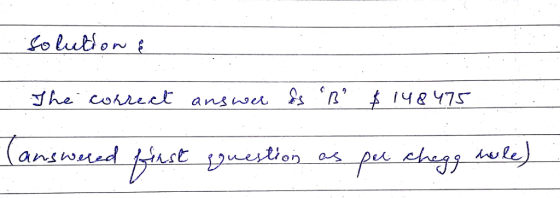 Solution :
The correct answer is 'B' $ 148475
(answered first question as per chegg rule)